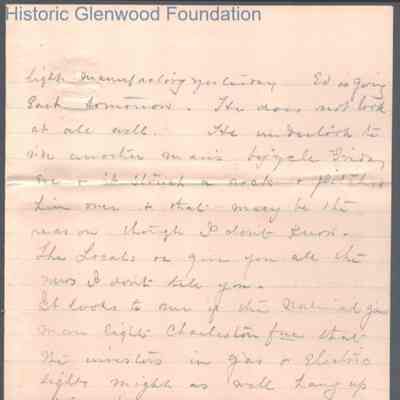 Historic Glenwood Foundation
light manufactory yesterday Ed is going
back tomorrow. He does not look
at all well. He undertook to
ride another man's bicycle Friday
eve & it struck a rock & pitched
him over & that may be the
reason though I don't know.
The Locals give you all the
news I don't tell you.
It looks to me if the Natural gas
man lights Charleston free that
the investors in gas & Electric
lights might as well hang up